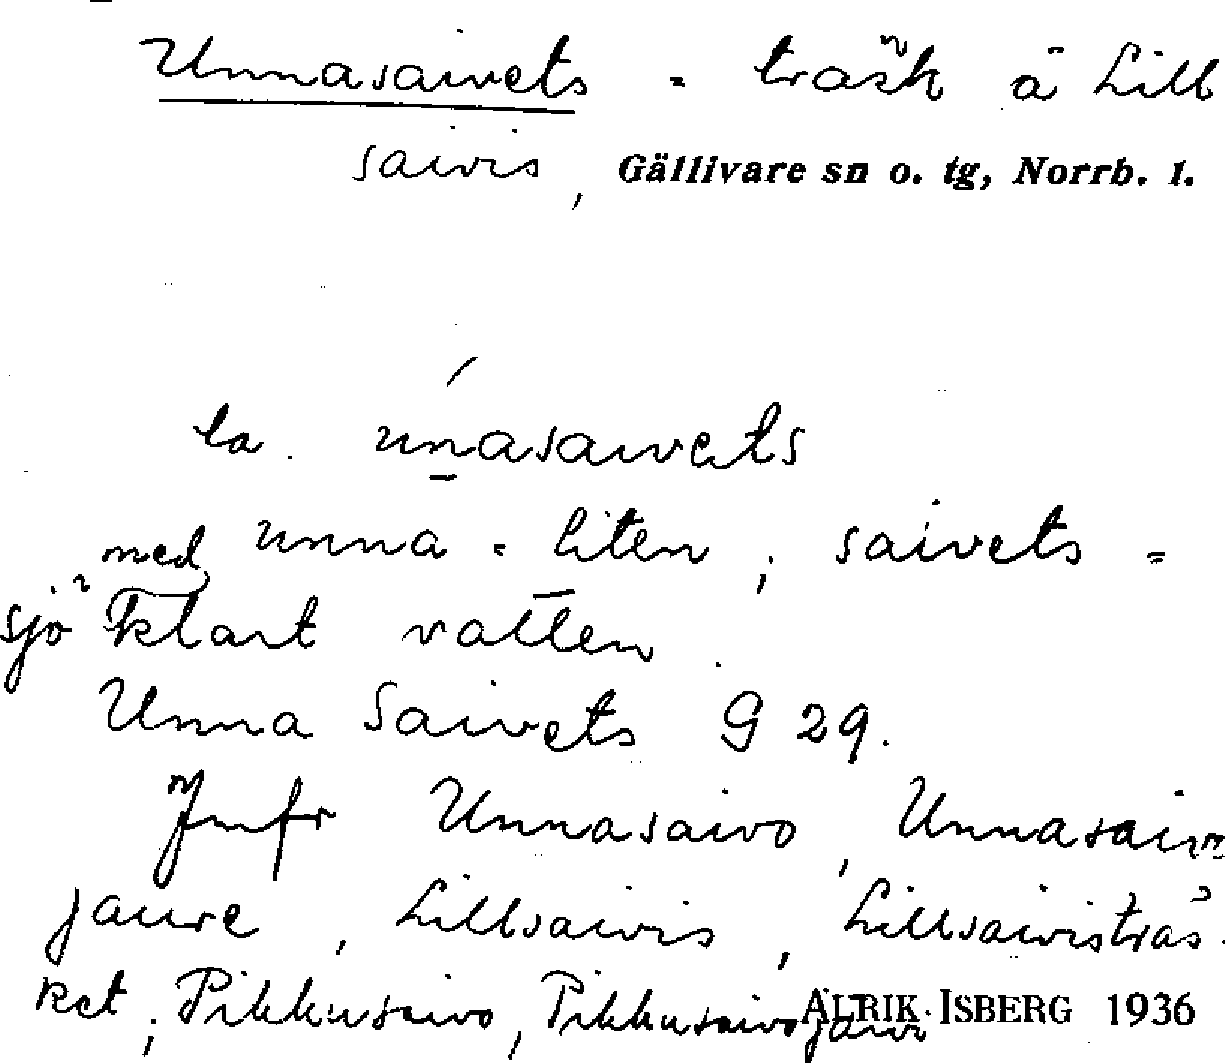 Unnasaivets = träsk å Lill
saivis, Gällivare sn o. tg, Norrb. l.
la. unasaivets
med unna = liten, saivets =
sjö klart vatten.
Unna Saivets G 29.
Jmfr Unnasaivo, Unnasaivo
jaure, Lillsaivis, Lillsaivisträs-
ket, Pikkusaivo, Pikkusaivojaure
ALRIK ISBERG 1936